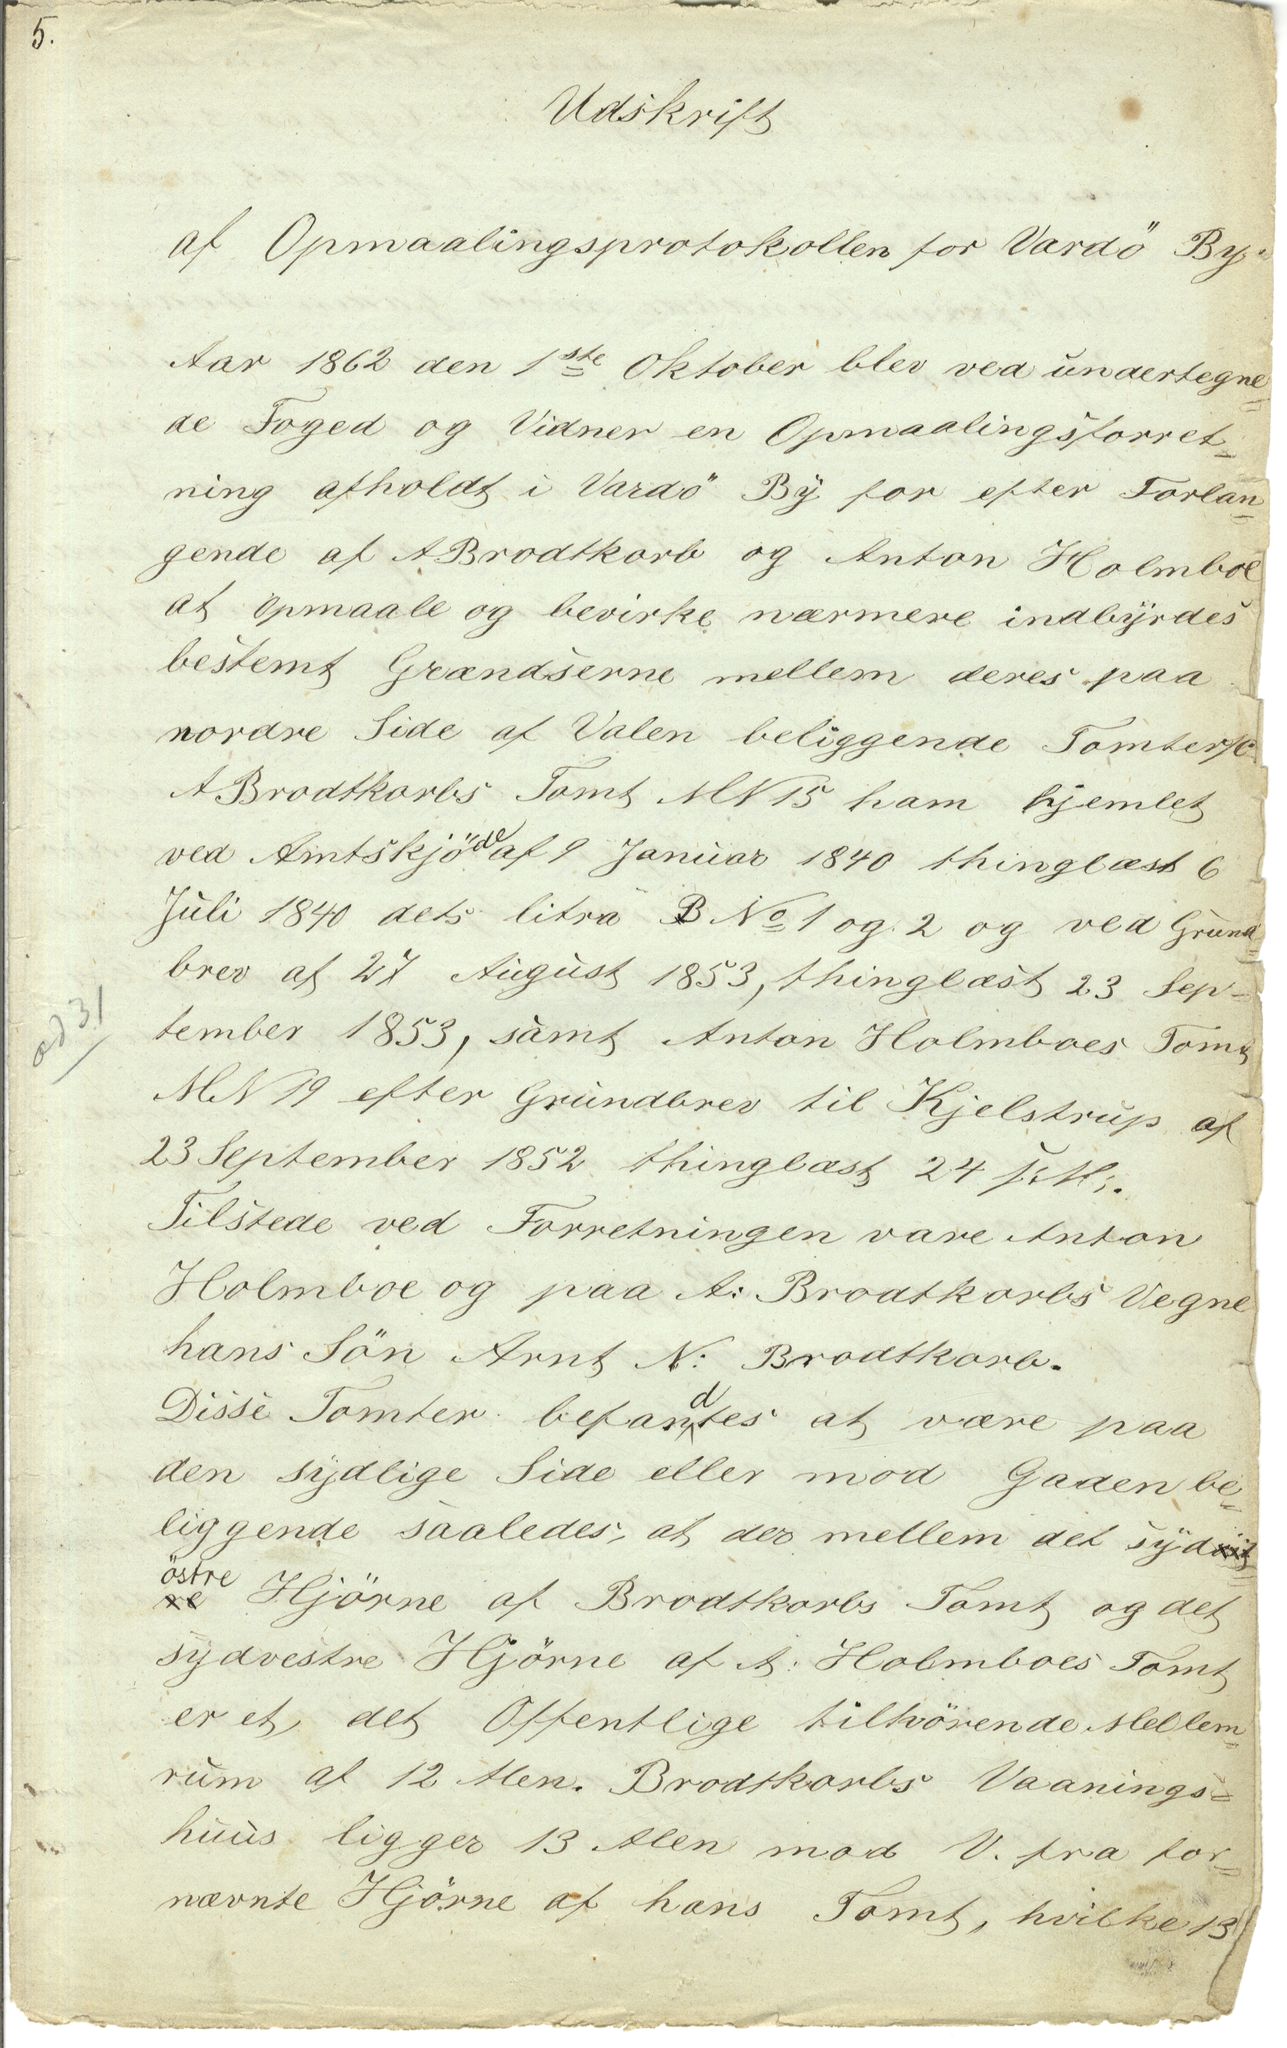 5.
Udskrift
af Opmaalingsprotokollen for Vardö By.
Aar 1862 den 1ste Oktober blev ved undertegne=
de Foged og Vidner en Opmaalingsforret=
ning afholdt i Vardö By for efter Forlan=
gende af ABrodtkorb og Anton Holmboe
at opmaale og bevirke nærmere indbyrdes
bestemt Grændserne mellem deres paa
nordre Side af Valen beliggende Tomter
ABrodtkorbs Tomt MN15 ham hjemlet
ved Amtskjöde af 9 Januar 1840 thinglæst 6
Juli 1840 dets litra B No 1 og 2 og ved Grund=
brev af 27 August 1853, thinglæst 23 Sep=
tember 1853, samt Anton Holmboes Tomt
ad 31
MN19 efter Grundbrev til Kjelstrup af
23 September 1852 thinglæst 24 s. M:.
Tilstede ved Forretningen vare Anton
Holmboe og paa A: Brodtkorbs Vegne
hans Sön Arnt N: Brodtkorb.
Disse Tomter befandtes at være paa
den sydlige Side eller mod Gaden be=
liggende saaledes, at der mellem det syd
östre Hjörne af Brodtkorbs Tomt og det
sydvestre Hjörne af A: Holmboes Tomt
er et, det Offentlige tilhörende Mellem=
rum af 12 Alen. Brodtkorbs Vaanings=
huus ligger 13 Alen mod V. fra for=
nævnte Hjörne af hans Tomt, hvilke 13